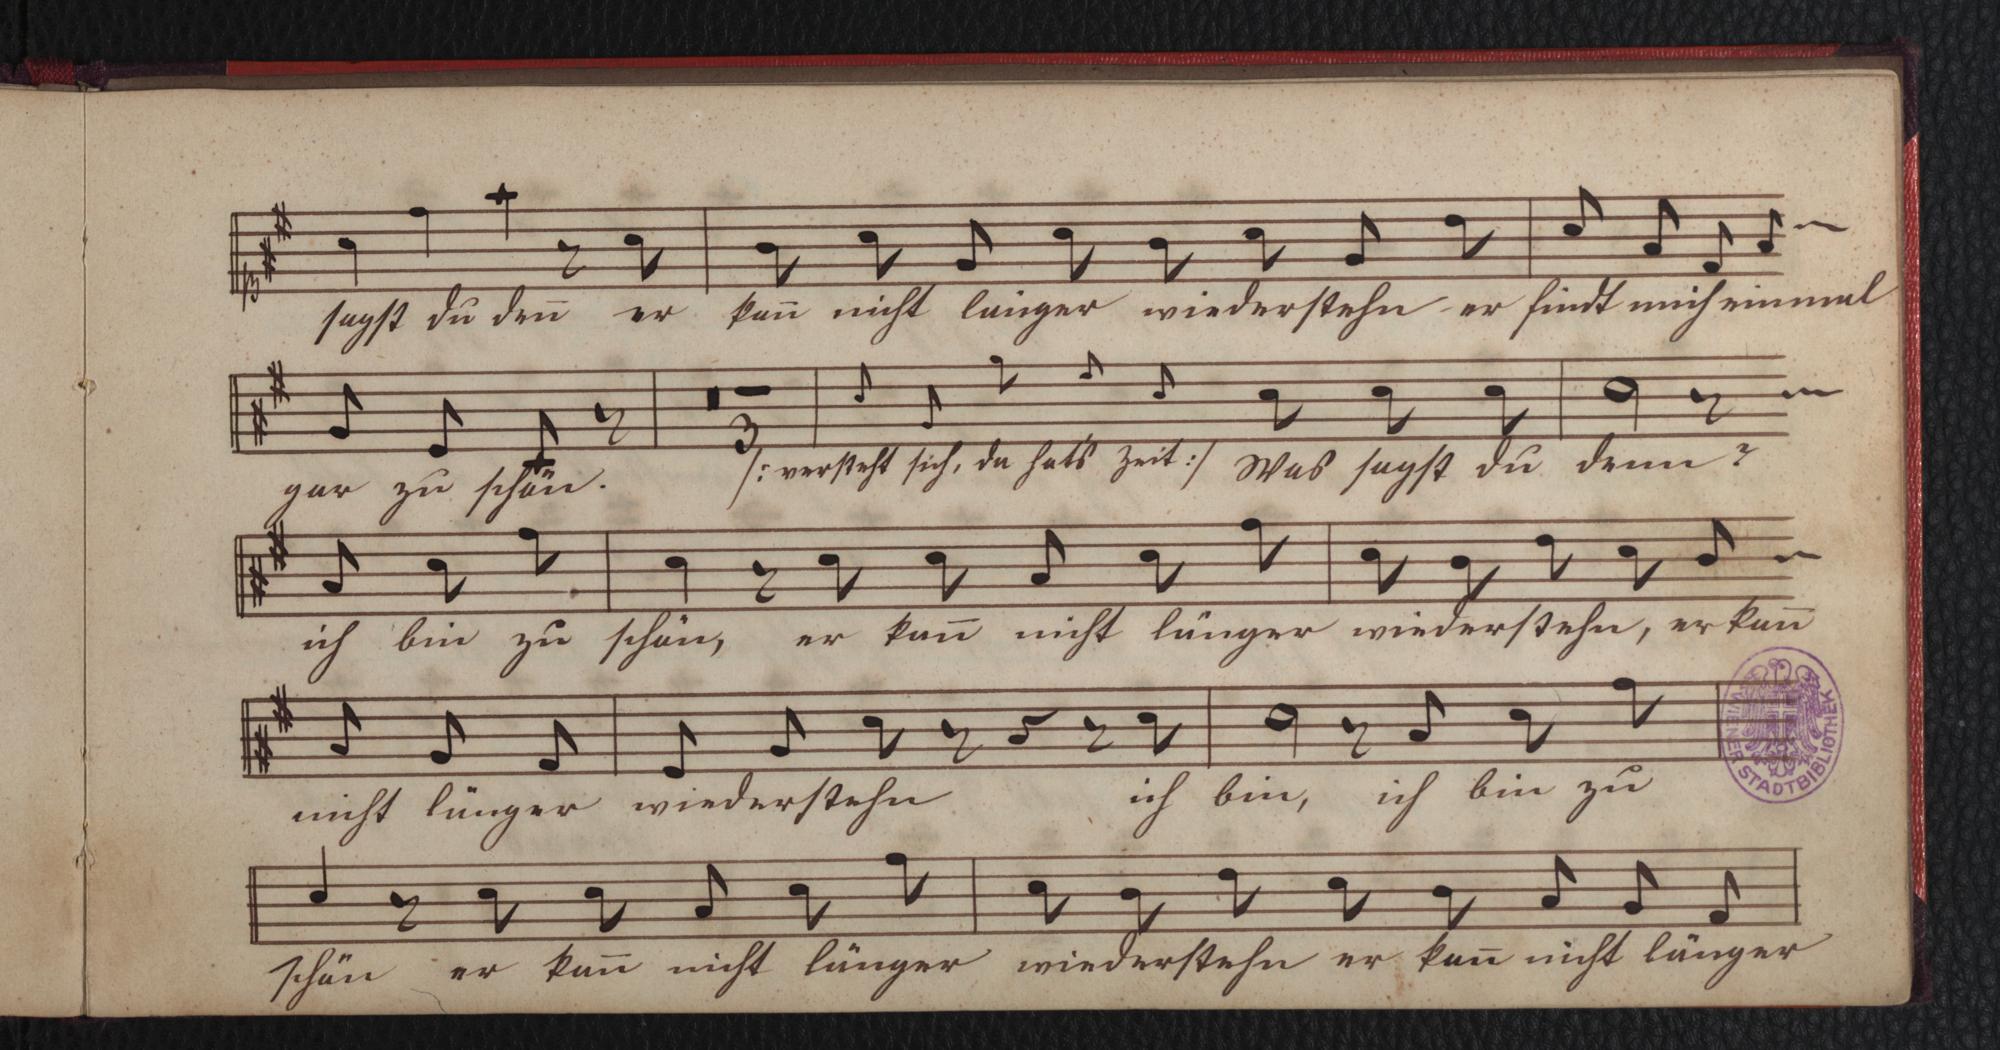 sagst du den̄ er kan̄ nicht länger wiederstehn er findt mich einmal
3
gar zu schön. /: versteht sich, da hats Zeit :/ Was sagst du denn?
ich bin zu schön, er kan̄ nicht länger wiederstehn, er kan̄
nicht länger wiederstehn ich bin, ich bin zu
schön er kan̄ nicht länger wiederstehn er kan̄ nicht länger
WIENER STADTBIBLIOTHEK